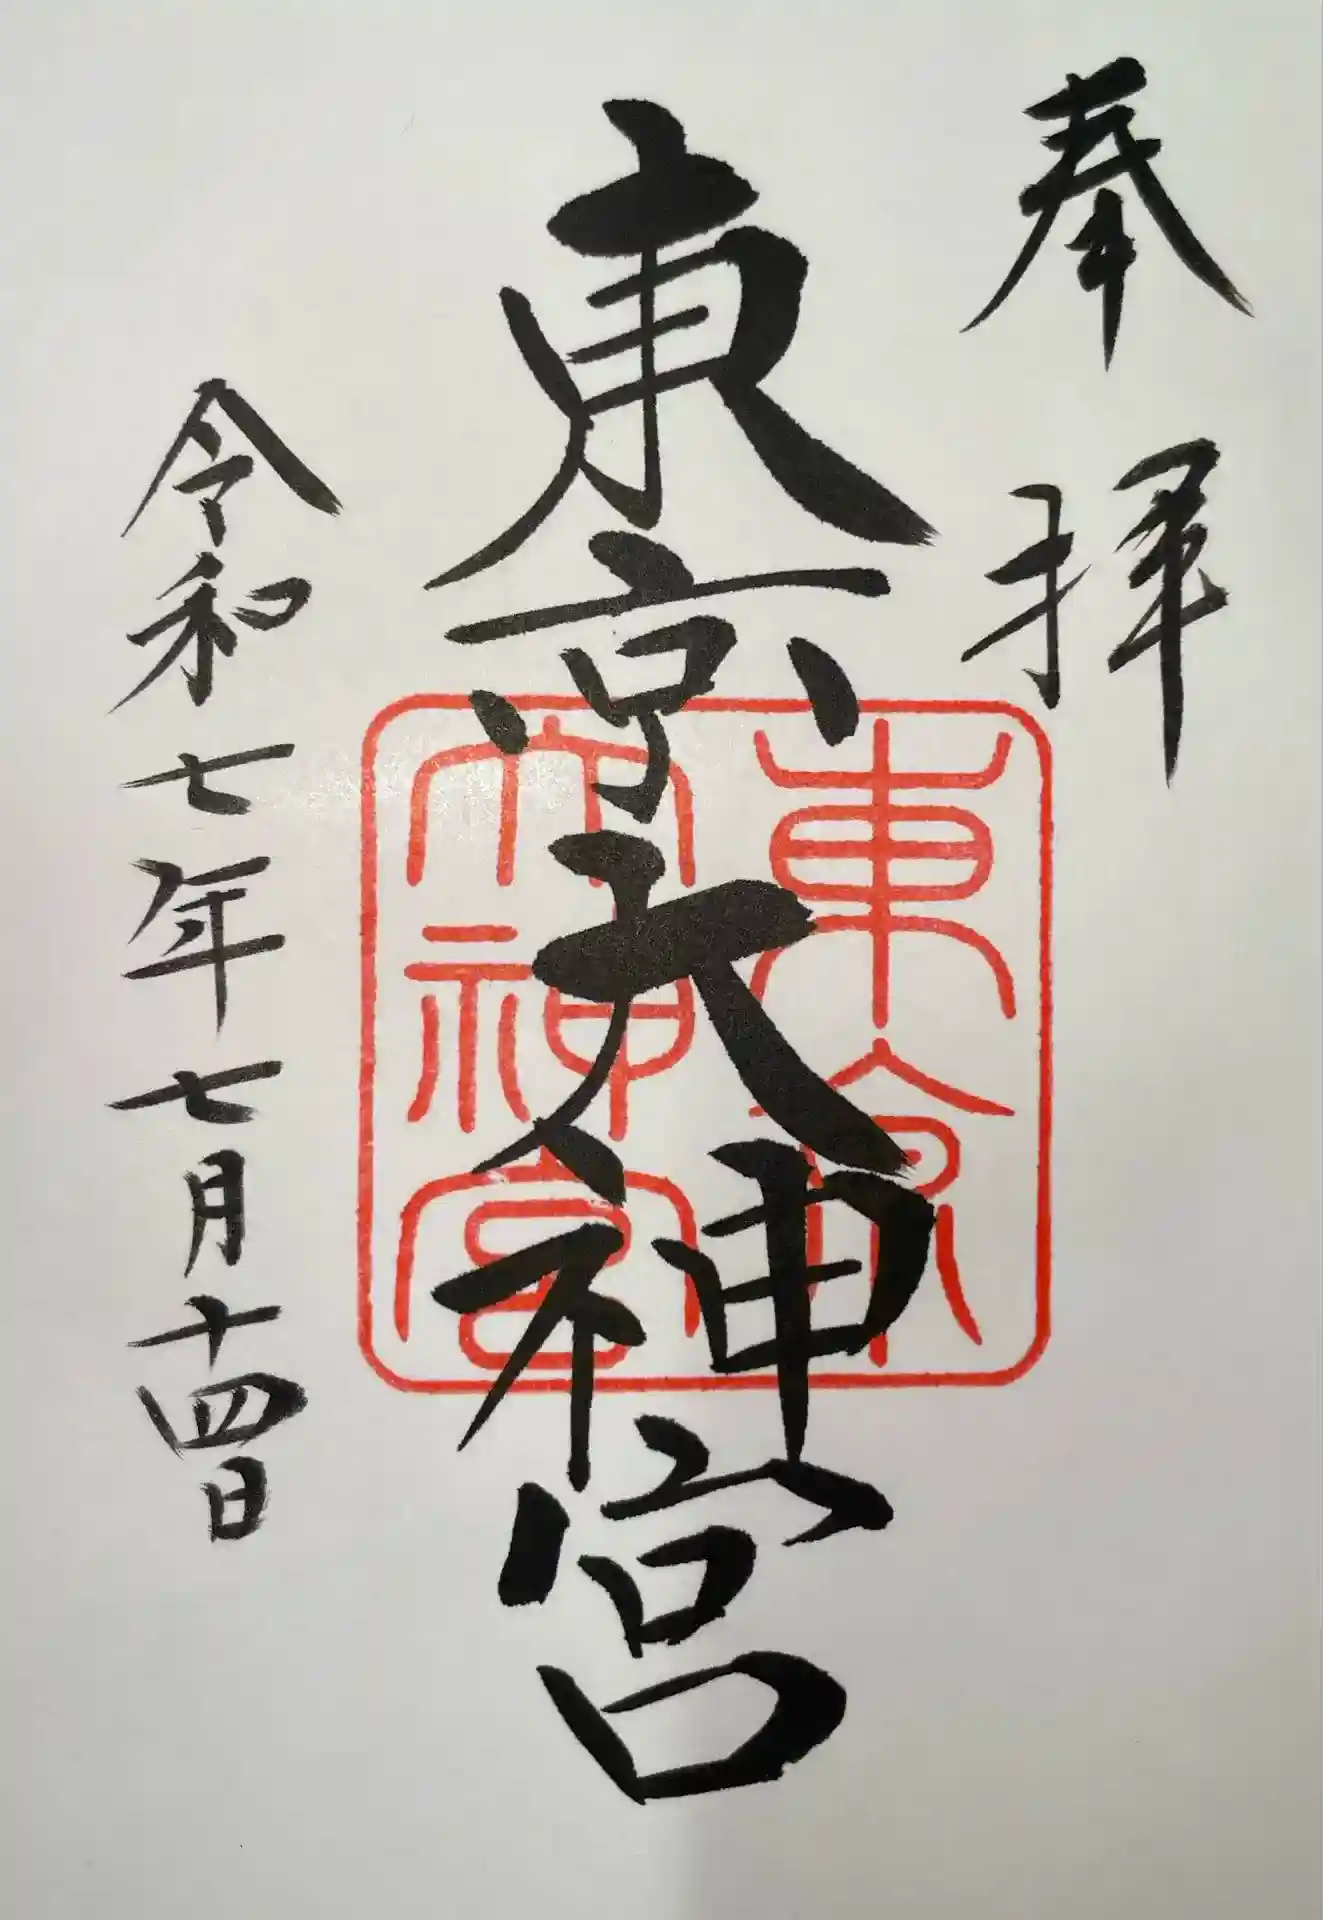 奉拝
東京大神宮
東京
大神宮
令和七年七月十四日